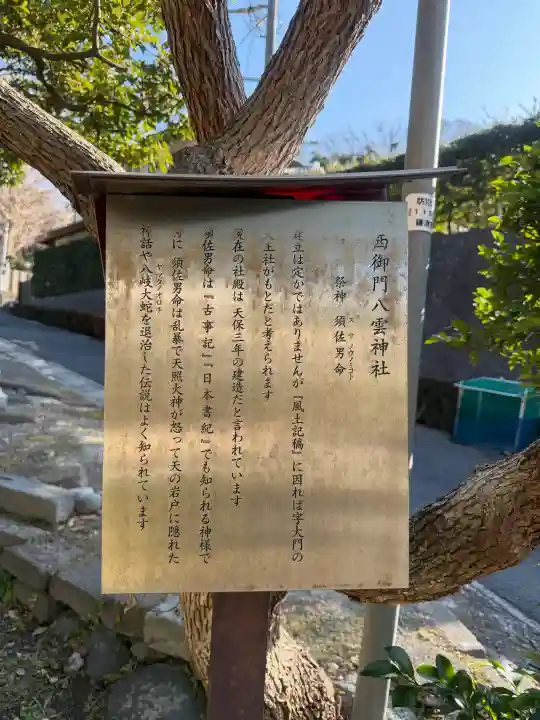 西御門八雲神社
祭神 須佐男命
スサノウノミコト
立は定かではありませんが『風土記稿』に因れば字大門の
王社がもとだと考えられます
現在の社殿は天保三年の建造だと言われています
須佐男命は『古事記』『日本書紀』でも知られる神様で
に 須佐男命は乱暴で天照大神が怒って天の岩戸に隠れた
神話や八岐大蛇を退治した伝説はよく知られています
ヤマタノオロチ